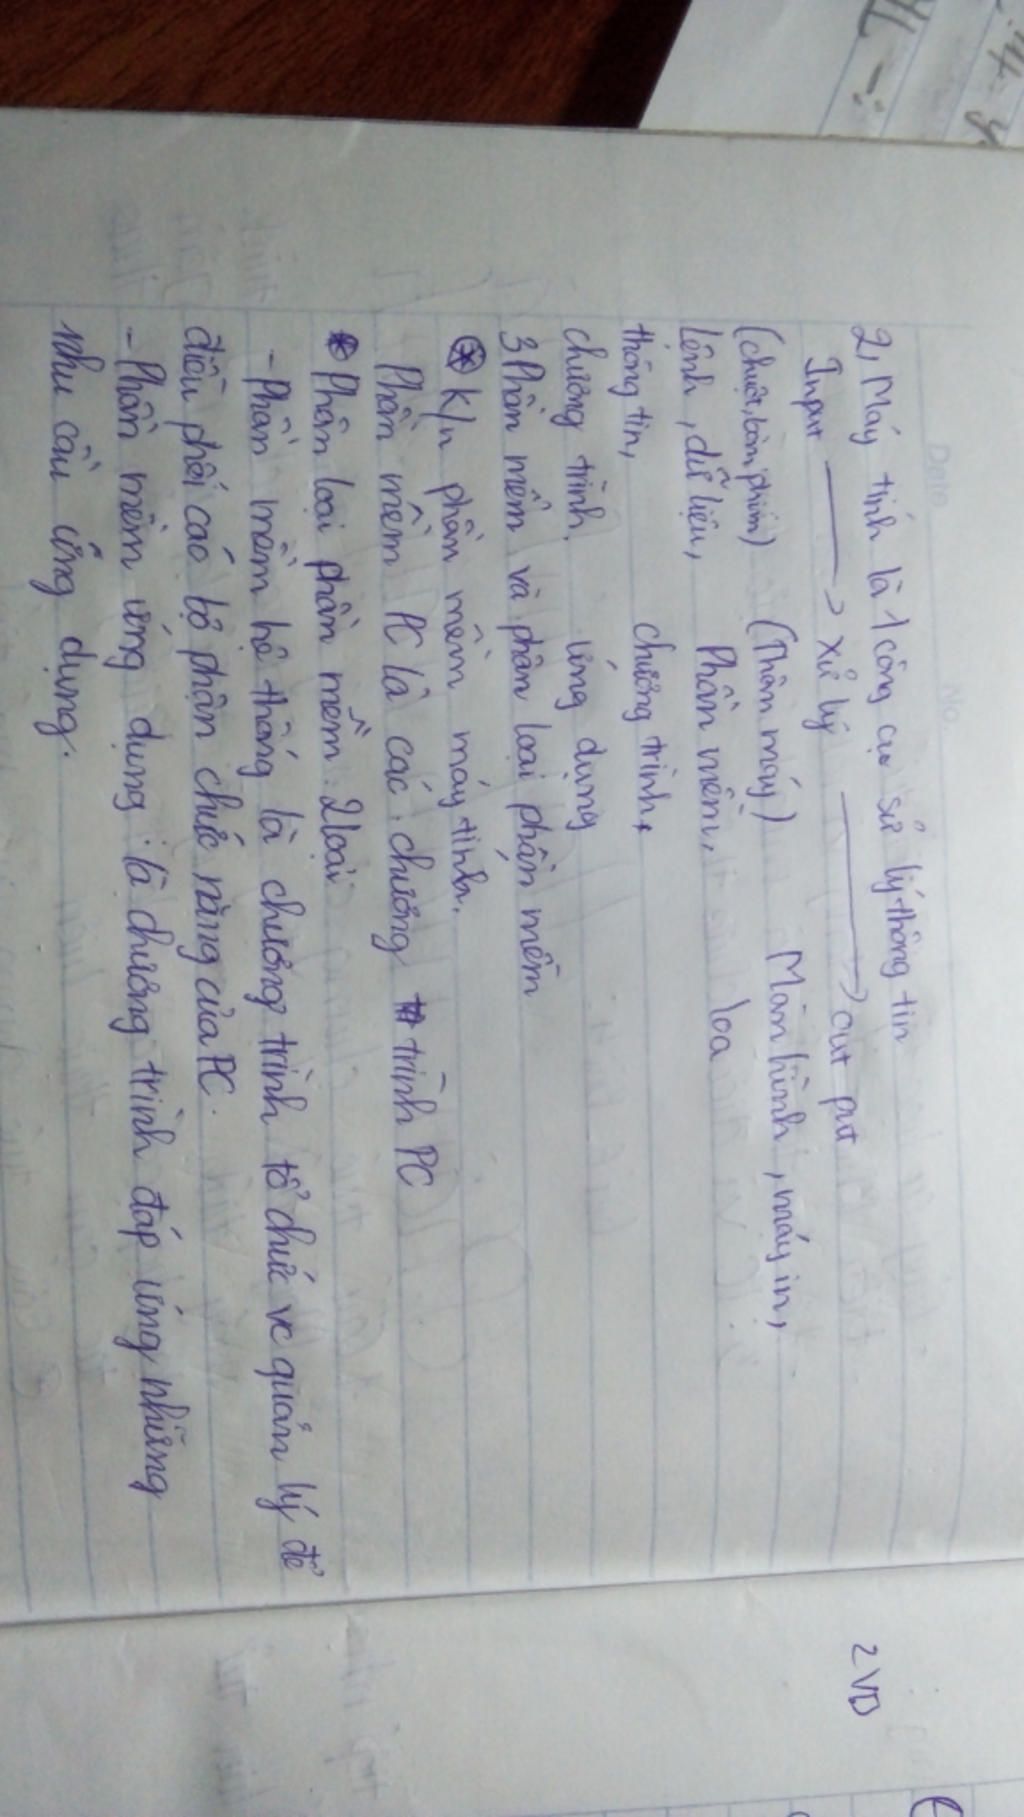 Date
No.
2, Máy tính là 1 công cụ sử lý thông tin
Input → xử lý → out put
(chuột, bàn phím) (Thân máy) Màn hình, máy in,
lệnh, dữ liệu, Phần mềm, loa
thông tin, chương trình,
chương trình. ứng dụng
3 Phần mềm và phân loại phần mềm
⊛ K/n phần mềm máy tính.
Phần mềm PC là các chương trình PC
⊛ Phân loại phần mềm: 2 loại
- Phần mềm hệ thống là chương trình tổ chức và quản lý để
điều phối các bộ phận chức năng của PC.
- Phần mềm ứng dụng: là chương trình đáp ứng những
nhu cầu ứng dụng.
2 VD